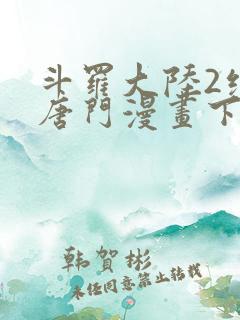 斗羅大陸2
唐門漫畫下
韩賀彬
未经同意禁止转载